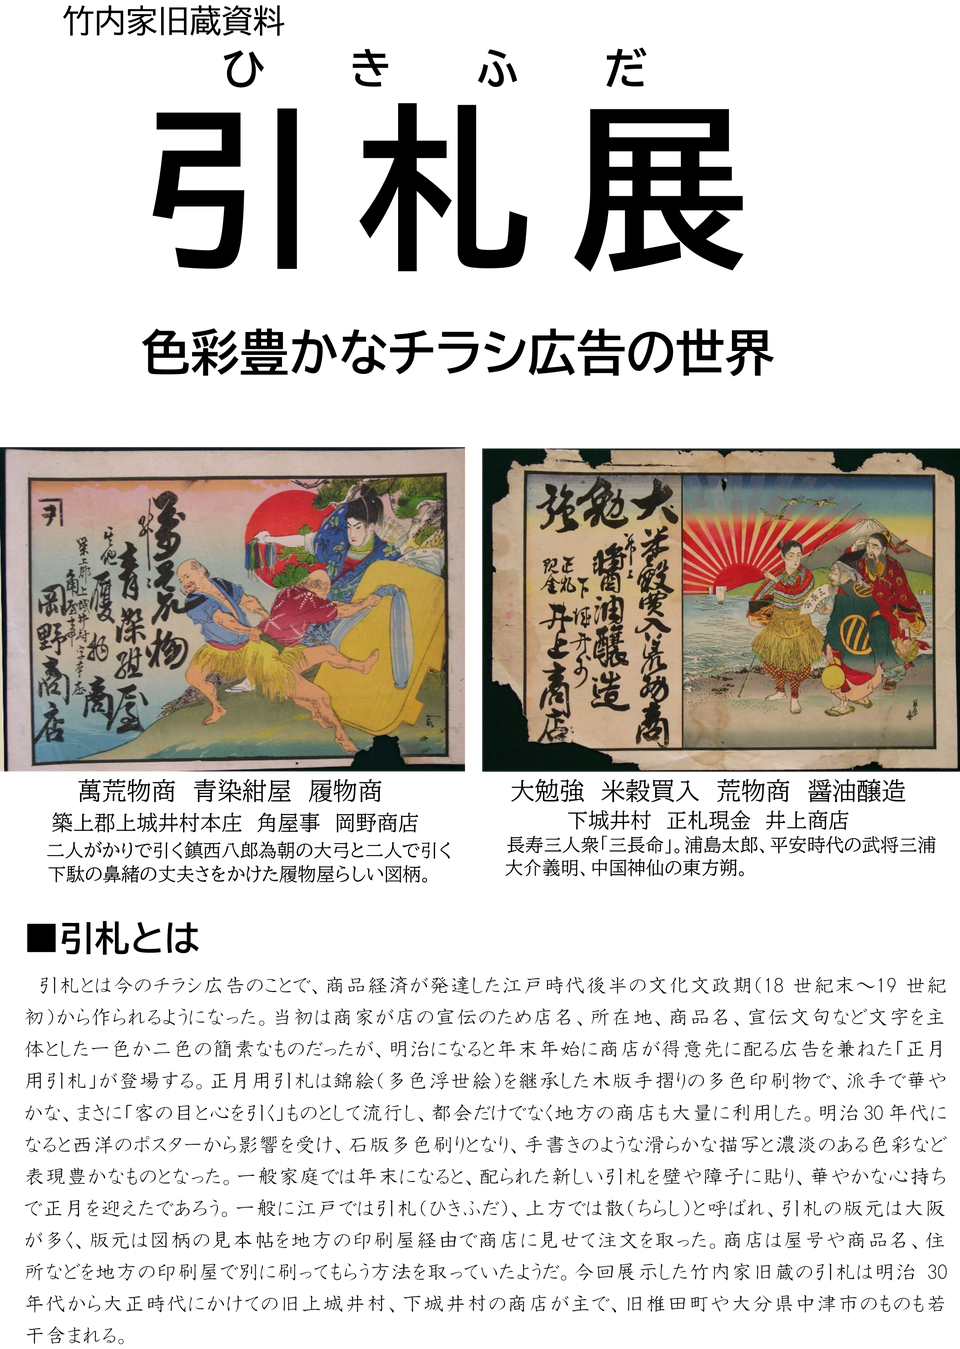 竹内家旧蔵資料
ひきふだ
引札展
色彩豊かなチラシ広告の世界
萬荒物
青染紺屋
履物商
岡野商店
大勉強
米穀買入荒物商
醬油醸造
正札
現金
井上商店
萬荒物商 青染紺屋 履物商
築上郡上城井村本庄 角屋事 岡野商店
二人がかりで引く鎮西八郎為朝の大弓と二人で引く
下駄の鼻緒の丈夫さをかけた履物屋らしい図柄。
大勉強 米穀買入 荒物商 醤油醸造
下城井村 正札現金 井上商店
長寿三人衆「三長命」。浦島太郎、平安時代の武将三浦
大介義明、中国神仙の東方朔。
■引札とは
引札とは今のチラシ広告のことで、商品経済が発達した江戸時代後半の文化文政期(18 世紀末～19 世紀
初)から作られるようになった。当初は商家が店の宣伝のため店名、所在地、商品名、宣伝文句など文字を主
体とした一色か二色の簡素なものだったが、明治になると年末年始に商店が得意先に配る広告を兼ねた「正月
用引札」が登場する。正月用引札は錦絵(多色浮世絵)を継承した木版手摺りの多色印刷物で、派手で華や
かな、まさに「客の目と心を引く」ものとして流行し、都会だけでなく地方の商店も大量に利用した。明治30年代に
なると西洋のポスターから影響を受け、石版多色刷りとなり、手書きのような滑らかな描写と濃淡のある色彩など
表現豊かなものとなった。一般家庭では年末になると、配られた新しい引札を壁や障子に貼り、華やかな心持ち
で正月を迎えたであろう。一般に江戸では引札(ひきふだ)、上方では散(ちらし)と呼ばれ、引札の版元は大阪
が多く、版元は図柄の見本帖を地方の印刷屋経由で商店に見せて注文を取った。商店は屋号や商品名、住
所などを地方の印刷屋で別に刷ってもらう方法を取っていたようだ。今回展示した竹内家旧蔵の引札は明治 30
年代から大正時代にかけての旧上城井村、下城井村の商店が主で、旧椎田町や大分県中津市のものも若
干含まれる。